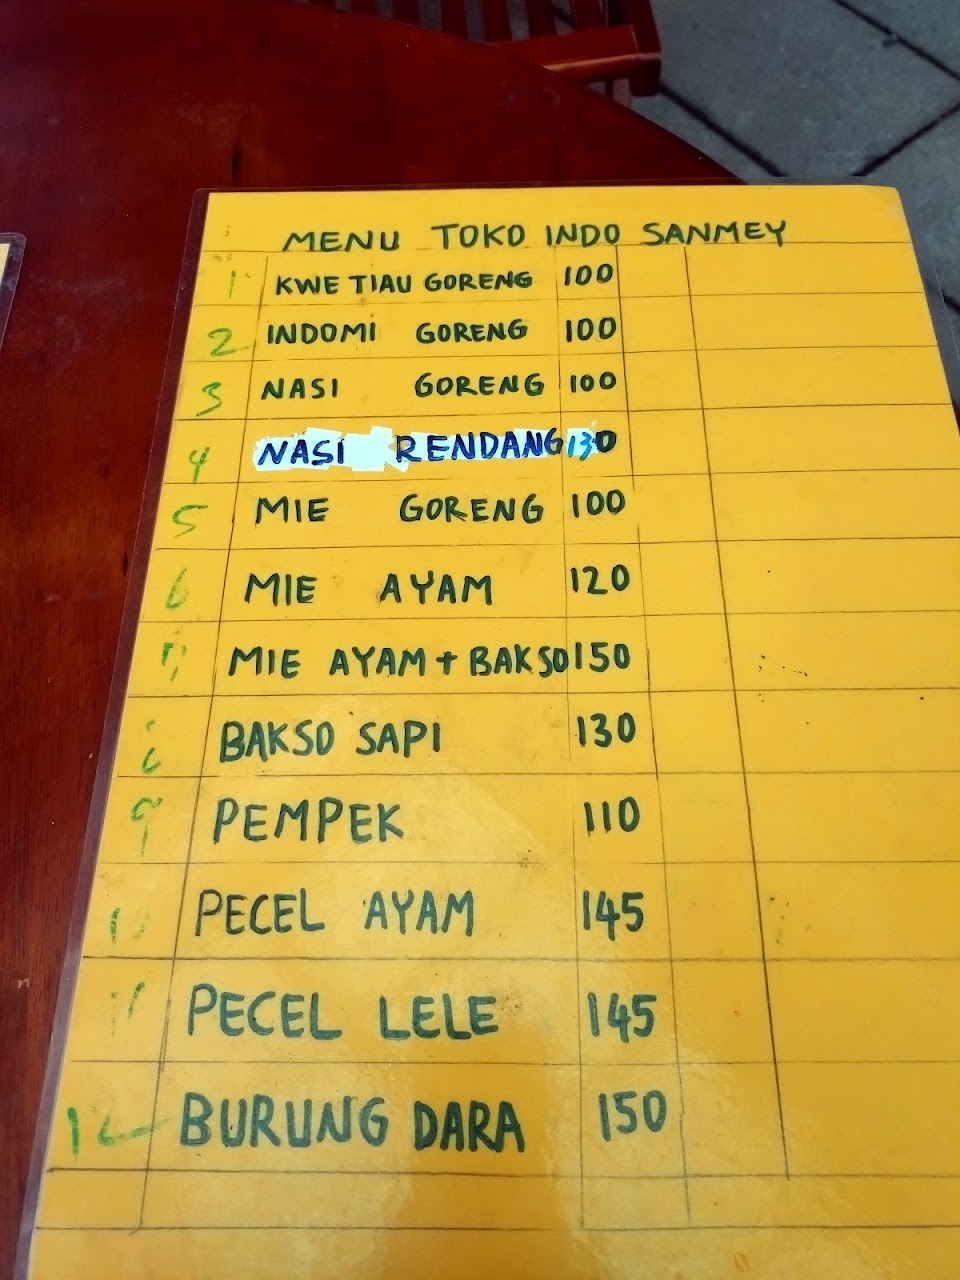 MENU TOKO INDO SANMEY
1 KWE TIAU GORENG 100
2 INDOMI GORENG 100
3 NASI GORENG 100
4 NASI RENDANG 130
5 MIE GORENG 100
6 MIE AYAM 120
MIE AYAM + BAKSO 150
BAKSO SAPI 130
9 PEMPEK 110
PECEL AYAM 145
11 PECEL LELE 145
12 BURUNG DARA 150